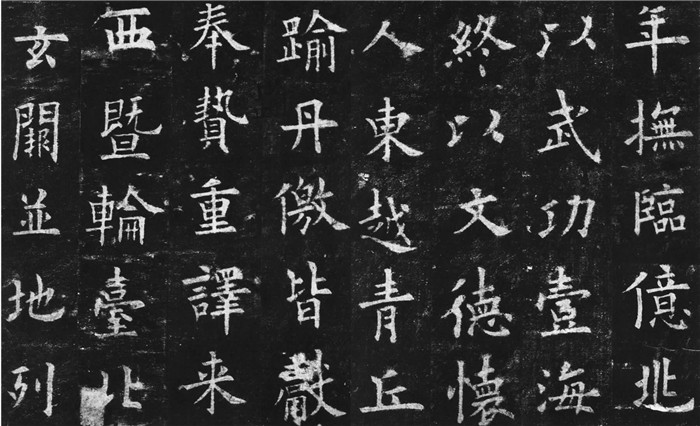 年撫臨億兆
以武功壹海
終以文德懷
人東越青丘
踰丹徼皆獻
奉贄重譯来
西暨輪臺北
玄闕並地列